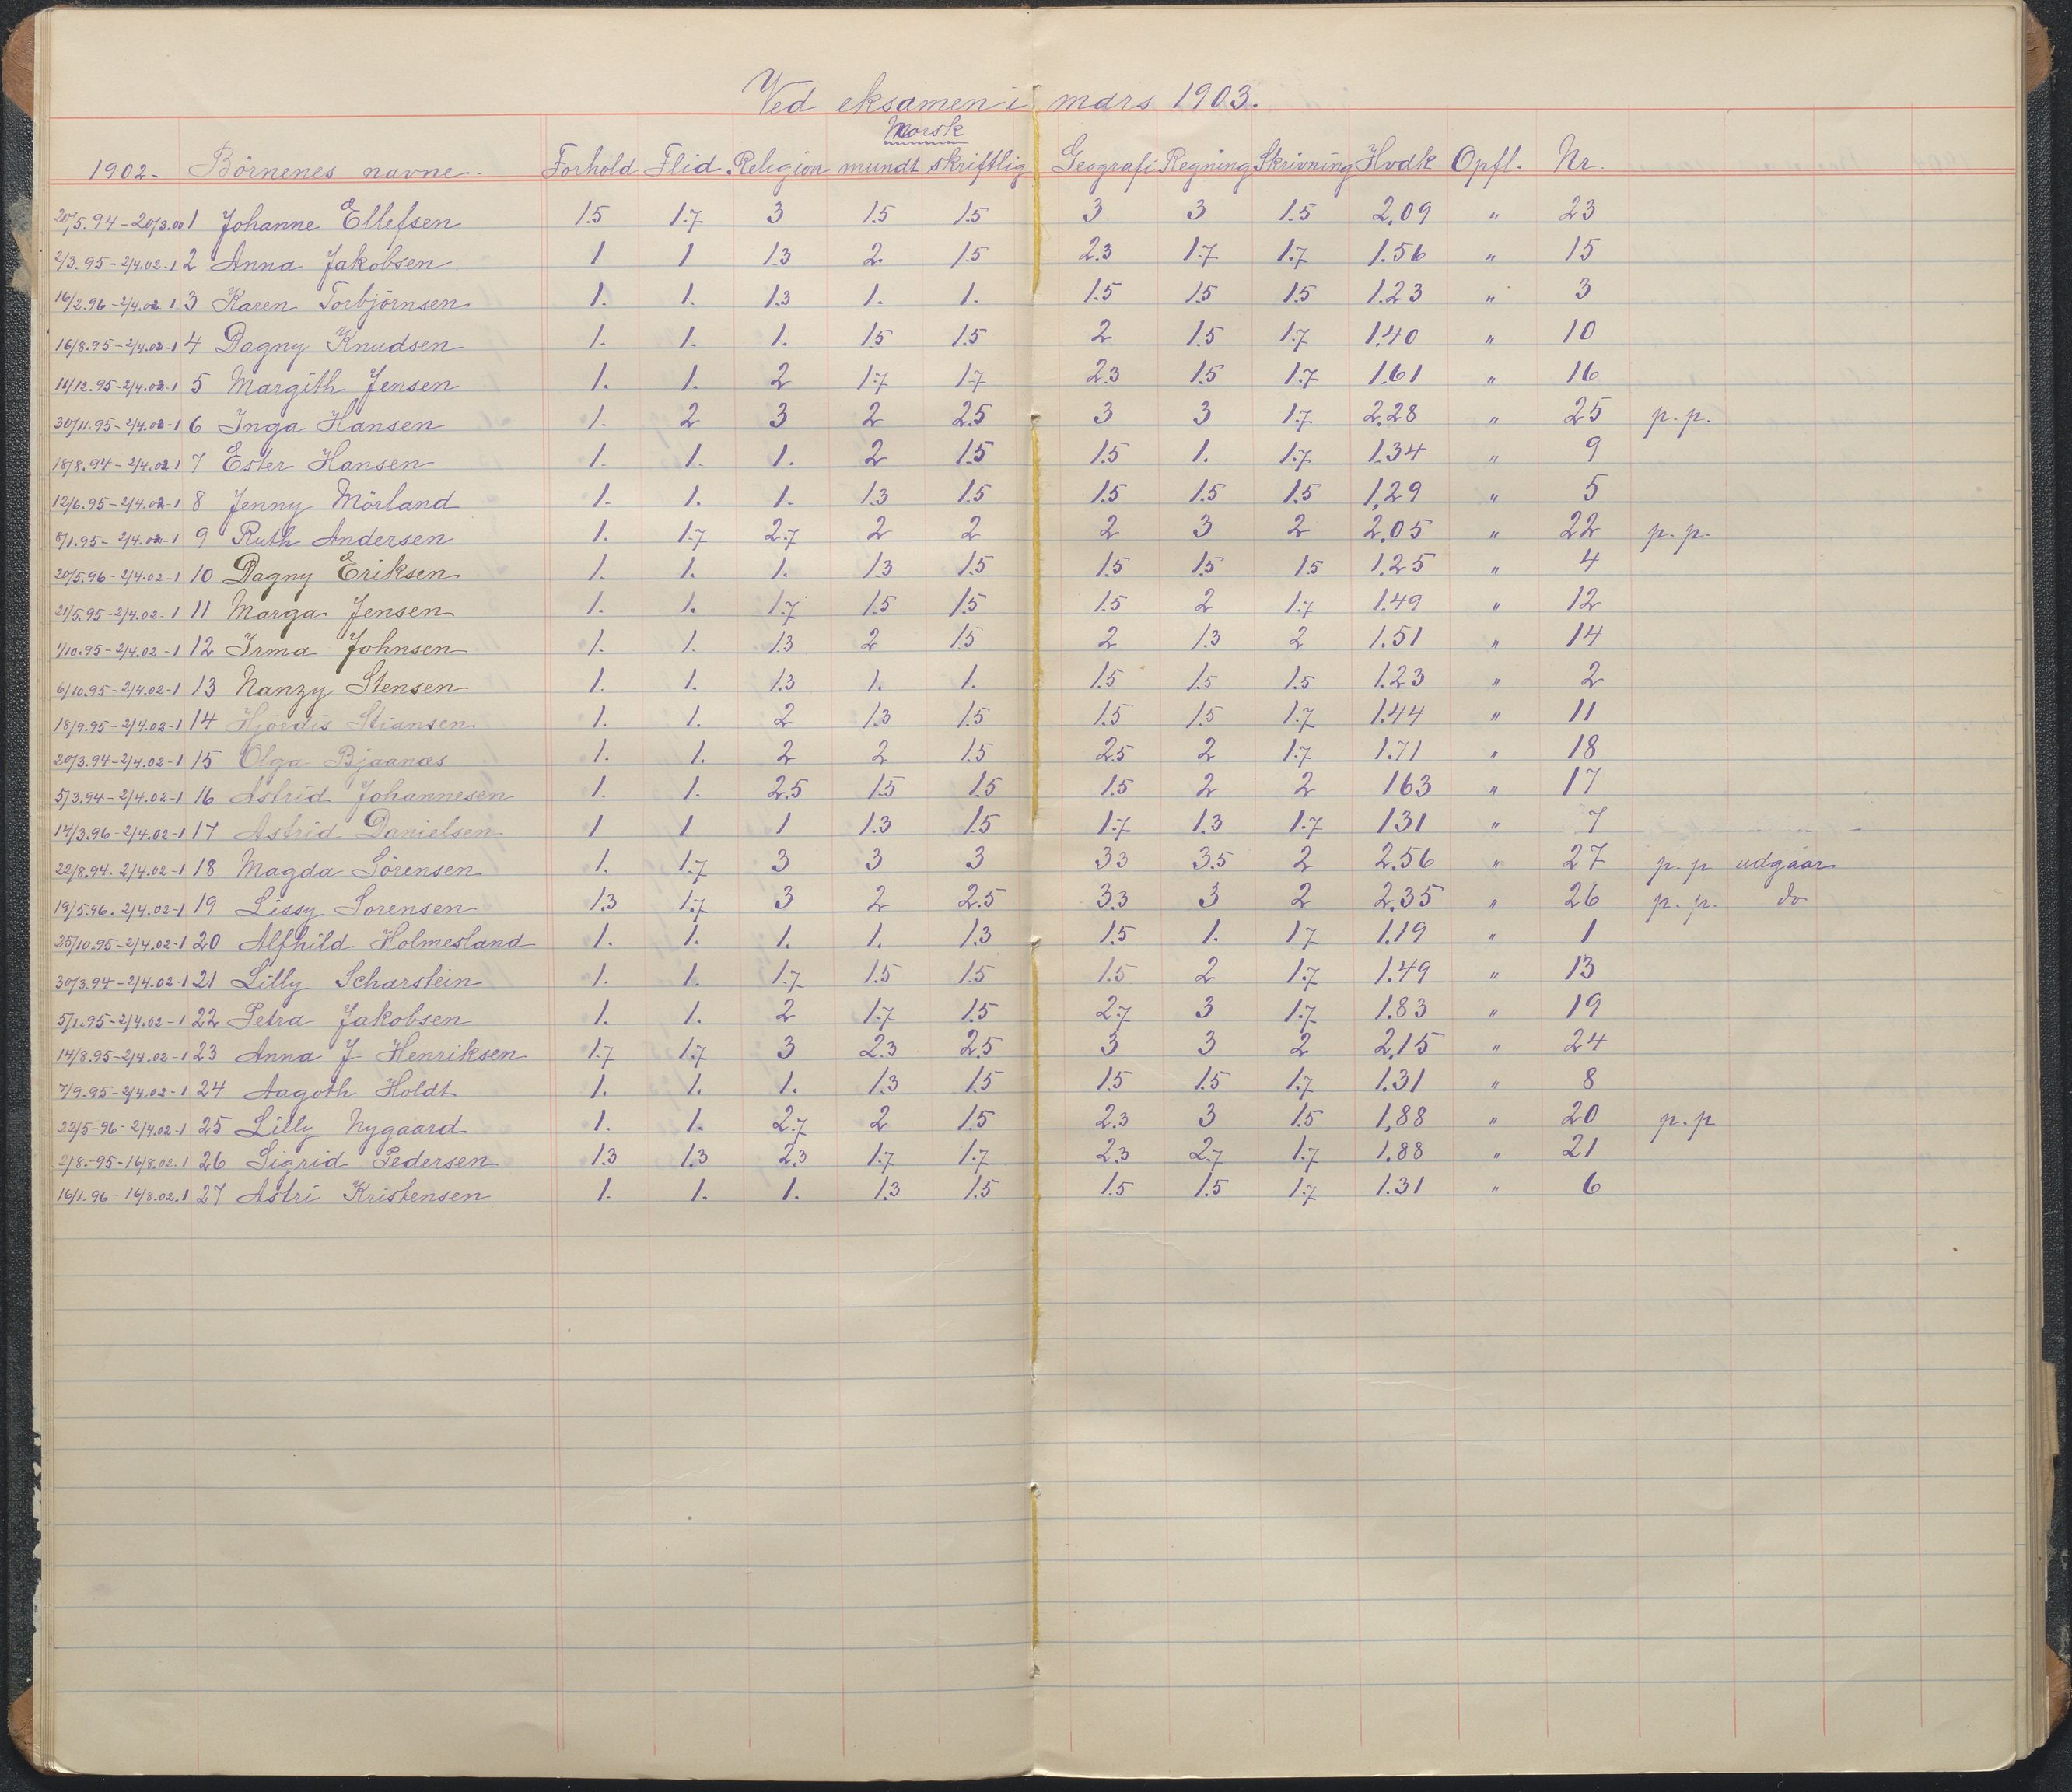 Ved eksamen i mars 1903.
Norsk
1902. Börnenes navne. Forhold Flid Religion mundt skriftlig Geografi Regning Skrivning Hvdk Opfl. Nr.
20/5.94-20/3.00 1 Johanne Ellefsen 1.5 1.7 3 1.5 1.5 3 3 1.5 2,09 " 23
2/3.95-2/4.02-1 2 Anna Jakobsen 1 1 1.3 2 1.5 2.3 1.7 1.7 1.56 " 15
16/2.96-2/4.02 1 3 Karen Torbjörnsen 1. 1. 1.3 1. 1. 1.5 1.5 1.5 1.23 " 3
16/8.95-2/4.02-1 4 Dagny Knudsen 1. 1. 1. 1.5 1.5 2 1.5 1.7 1.40 " 10
11/12.95-2/4.02-1 5 Margith Jensen 1. 1. 2 1.7 1.7 2.3 1.5 1.7 1.61 " 16
30/11.95-2/4.02-1 6 Inga Hansen 1. 2 3 2 2.5 3 3 1.7 2.28 " 25 p.p.
18/8.94-2/4.02 1 7 Ester Hansen 1. 1. 1. 2 1.5 1.5 1. 1.7 1.34 " 9
12/6.95-2/4.02-1 8 Jenny Mörland 1. 1. 1. 1.3 1.5 1.5 1.5 1.5 1,29 " 5
8/1.95-2/4.02-1 9 Ruth Andersen 1. 1.7 2.7 2 2 2 3 2 2,05 " 22 p.p.
20/5.96-2/4.02-1 10 Dagny Eriksen 1. 1. 1. 1.3 1.5 1.5 1.5 1.5 1.25 " 4
21/5.95-2/4.02-1 11 Marga Jensen 1. 1. 1.7 1.5 1.5 1.5 2 1.7 1.49 " 12
1/10.95-2/4.02-1 12 Irma Johnsen 1. 1. 1.3 2 1.5 2 1.3 2 1.51 " 14
6/10.95-2/4.02-1 13 Nanzy Stensen 1. 1. 1.3 1. 1. 1.5 1.5 1.5 1.23 " 2
18/9.95-2/4.02-1 14 Hjördis Stiansen 1. 1. 2 1.3 1.5 1.5 1.5 1.7 1.44 " 11
20/3.94-2/4.02-1 15 Olga Bjaanæs 1. 1. 2 2 1.5 2.5 2 1.7 1.71 " 18
5/3.94-2/4.02-1 16 Astrid Johannesen 1. 1. 2.5 1.5 1.5 1.5 2 2 163 " 17
14/3.96-2/4.02-1 17 Astrid Danielsen 1 1 1 1.3 1.5 1.7 1.3 1.7 131 " 7
22/8.94. 2/4.02-1 18 Magda Sörensen 1. 1.7 3 3 3 3.3 3.5 2 2.56 " 27 p.p udgaar
19/5.96. 2/4.02-1 19 Lissy Sorensen 1.3 1.7 3 2 2.5 3.3 3 2 2.35 " 26 p.p. do
25/10.95-2/4.02-1 20 Alfhild Holmesland 1. 1. 1. 1. 1.3 1.5 1. 17 1.19 " 1
30/3.94-2/4.02-1 21 Lilly Scharstein 1. 1. 1.7 1.5 1.5 1.5 2 1.7 1.49 " 13
5/1.95-2/4.02-1 22 Petra Jakobsen 1. 1. 2 1.7 1.5 2.7 3 1.7 1.83 " 19
14/8.95-2/4.02-1 23 Anna J. Henriksen 1.7 1.7 3 2.3 2.5 3 3 2 2,15 " 24
7/9.95-2/4.02-1 24 Aagoth Holdt 1. 1. 1. 1.3 1.5 1.5 1.5 1.7 1.31 " 8
22/5-96-2/4.02-1 25 Lilly Nygaard 1. 1. 2.7 2 1.5 2.3 3 1.5 1,88 " 20 p.p
2/8.-95-16/8.02.1 26 Sigrid Pedersen 1.3 1.3 2.3 1.7 1.7 2.3 2.7 1.7 1.88 " 21
16/1.96-16/8.02.1 27 Astri Kristensen 1. 1. 1. 1.3 1.5 1.5 1.5 1.7 1.31 " 6